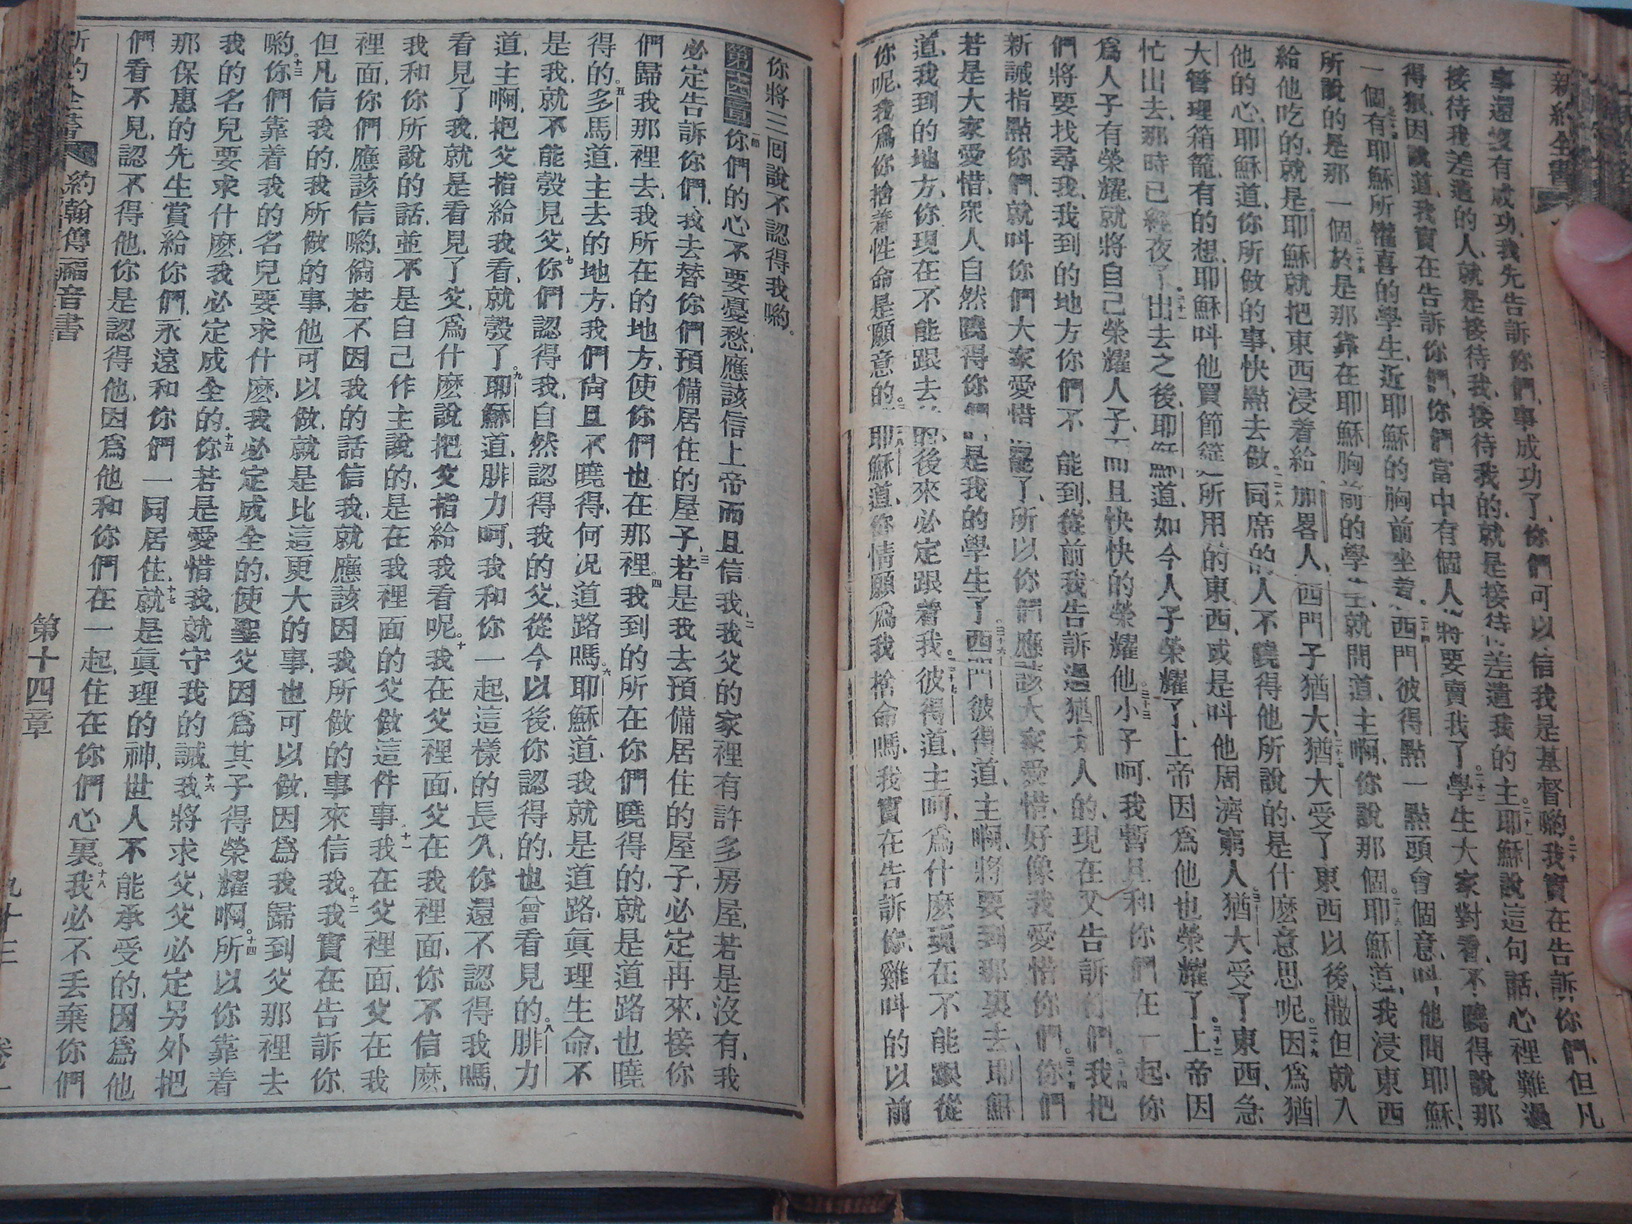 新約全書
事還沒有成功、我先告訴你們、事成功了、你們可以信我是基督喲、二十我實在告訴你們、但凡
接待我差遣的人、就是接待我、接待我的、就是接待差遣我的主、二十一耶穌說這句話、心裡難過
得狠、因說道、我實在告訴你們、你們當中有個人將要賣我了、二十二學生大家對看、不曉得說那
一個、有耶穌所懽喜的學生、近耶穌的胸前坐着、二十四西門彼得點一點頭會個意、叫他問耶穌、
所說的是那一個、二十五於是那靠在耶穌胸前的學生、就問道、主啊、你說那個、耶穌道、我浸東西
給他吃的、就是、耶穌就把東西浸着、給加畧人、西門子猶大、二十七猶大受了東西以後、撒但就入
他的心、耶穌道、你所做的事、快點去做、二十八同席的人、不曉得他所說的是什麽意思呢、二十九因爲猶
大管理箱籠、有的想、耶穌叫他買節筵所用的東西、或是叫他周濟窮人、猶大受了東西、急
忙出去、那時已經夜了、三十一出去之後、耶穌道、如今人子榮耀了、上帝因爲他也榮耀了、三十二上帝因
爲人子有榮耀、就將自己榮耀人子、而且快快的榮耀他、三十三小子呵、我暫且和你們在一起、你
們將要找尋我、我到的地方、你們不能到、從前我告訴過猶太人的、現在又告訴你們、三十四我把
新誡指點你們、就叫你們大家愛惜、罷了、所以你們應該大家愛惜、好像我愛惜你們、你們
若是大家愛惜、衆人自然曉得你們是我的學生了、三十六西門彼得道、主啊、將要到那裏去、耶穌
道、我到的地方、你現在不能跟去、後來必定跟着我、三十七彼得道、主呵、爲什麽現在不能跟從
你呢、我爲你捨着性命是願意的、三十八耶穌道、你情願爲我捨命嗎、我實在告訴你、雞叫的以前
你將三回說不認得我喲。
第十四章一節你們的心不要憂愁、應該信上帝、而且信我、二我父的家裡有許多房屋、若是沒有、我
必定告訴你們、我去替你們預備居住的屋子、三若是我去預備居住的屋子、必定再來、接你
們歸我那裡去、我所在的地方、使你們也在那裡、四我到的所在、你們曉得的、就是道路也曉
得的、五多馬道、主去的地方、我們尙且不曉得、何况道路嗎、六耶穌道、我就是道路、眞理、生命、不
是我、就不能彀見父、七你們認得我、自然認得我的父、從今以後、你認得的、也曾看見的、八腓力
道、主啊、把父指給我看、就彀了、九耶穌道、腓力呵、我和你一起、這樣的長久、你還不認得我嗎、
看見了我、就是看見了父、爲什麽說、把父指給我看呢、十我在父裡面、父在我裡面、你不信麽、
我和你所說的話、並不是自己作主說的、是在我裡面的父做這件事、十一我在父裡面、父在我
裡面、你們應該信喲、倘若不因我的話信我、就應該因我所做的事來信我、十二我實在告訴你、
但凡信我的、我所做的事、他可以做、就是比這更大的事、也可以做、因爲我歸到父那裡去
喲、十三你們靠着我的名兒要求什麽、我必定成全的、使聖父因爲其子得榮耀啊、十四所以你靠着
我的名兒要求什麽、我必定成全的、十五你若是愛惜我、就守我的誡、十六我將求父、父必定另外把
那保惠的先生賞給你們、永遠和你們一同居住、十七就是眞理的神、世人不能承受的、因爲他
們看不見、認不得他、你是認得他、因爲他和你們在一起、住在你們心裏、十八我必不丟棄你們
新約全書 約翰傳福音書 第十四章 九十三